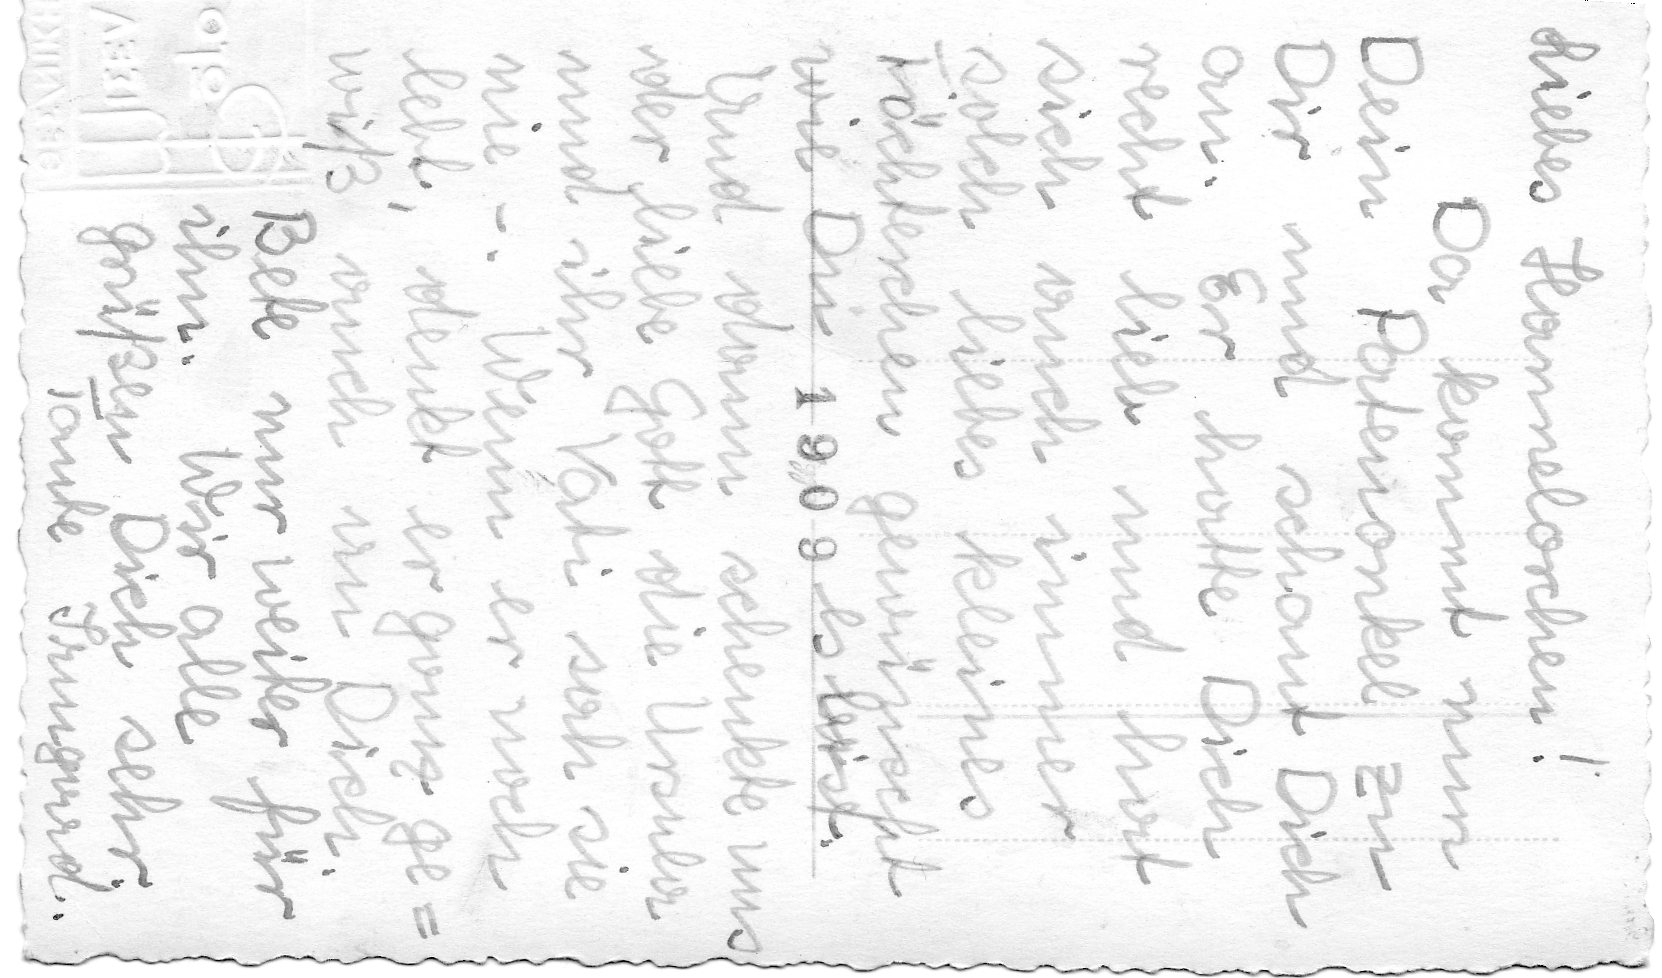 Liebes Hannelorchen!
Da kommt nun
Dein Patenonkel zu
Dir und schaut Dich
an. Er hatte Dich
recht lieb und hat
sich auch immer
solch liebes kleines
Töchterchen gewünscht
wie Du es bist.
Und dann schenkte uns
der liebe Gott die Ursula
und ihr Vati sah sie
nie -. Wenn er noch
lebt, denkt er ganz ge=
wiß auch an Dich.
Bete nur weiter für
ihn. Wir alle
grüßen Dich sehr
Tante Irmgard.
1909